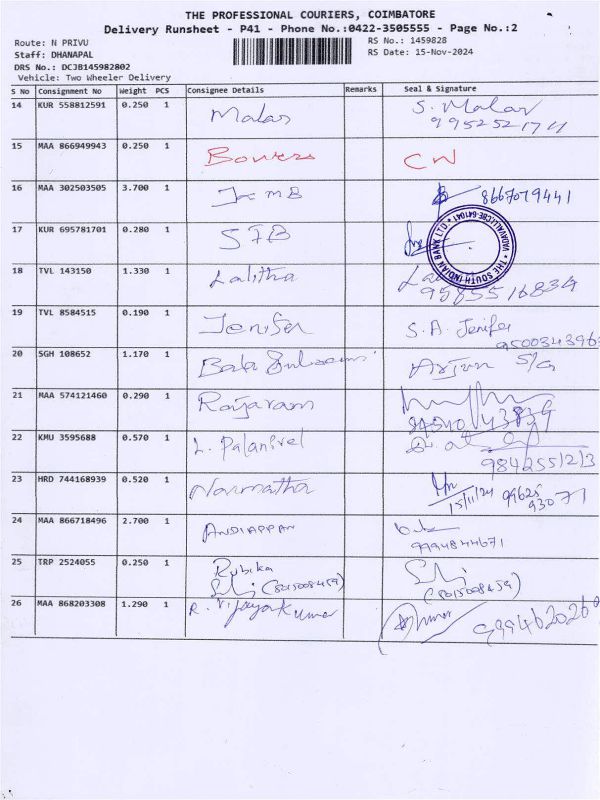 THE PROFESSIONAL COURIERS, COIMBATORE
Delivery Runsheet - P41 - Phone No.:0422-3505555 - Page No.:2
Route: N PRIVU RS No.: 1459828
Staff: DHANAPAL RS Date: 15-Nov-2024
DRS No.: DCJB145982802
Vehicle: Two Wheeler Delivery
S No Consignment No Weight PCS Consignee Details Remarks Seal & Signature
14 KUR 558812591 0.250 1 Malar S. Malar
9952521711
15 MAA 866949943 0.250 1 CW
16 MAA 302503505 3.700 1 8667079441
17 KUR 695781701 0.280 1 SIB
* THE SOUTH INDIAN BANK LTD * VADAVALLI CBE-641041
18 TVL 143150 1.330 1 Lalitha
9585516834
19 TVL 8584515 0.190 1 Jenifer S. A. Jenifer
9500343963
20 SGH 108652 1.170 1 Bala Arjun S/G
21 MAA 574121460 0.290 1 Rajaram
22 KMU 3595688 0.570 1 L. Palanivel
9842551213
23 HRD 744168939 0.520 1 Narmatha 15/11/24 99625
93071
24 MAA 866718496 2.700 1 ANDIAPPAN
9994844671
25 TRP 2524055 0.250 1 Rubika
(8015008459) (8015008459)
26 MAA 868203308 1.290 1 R. Vijayakumar